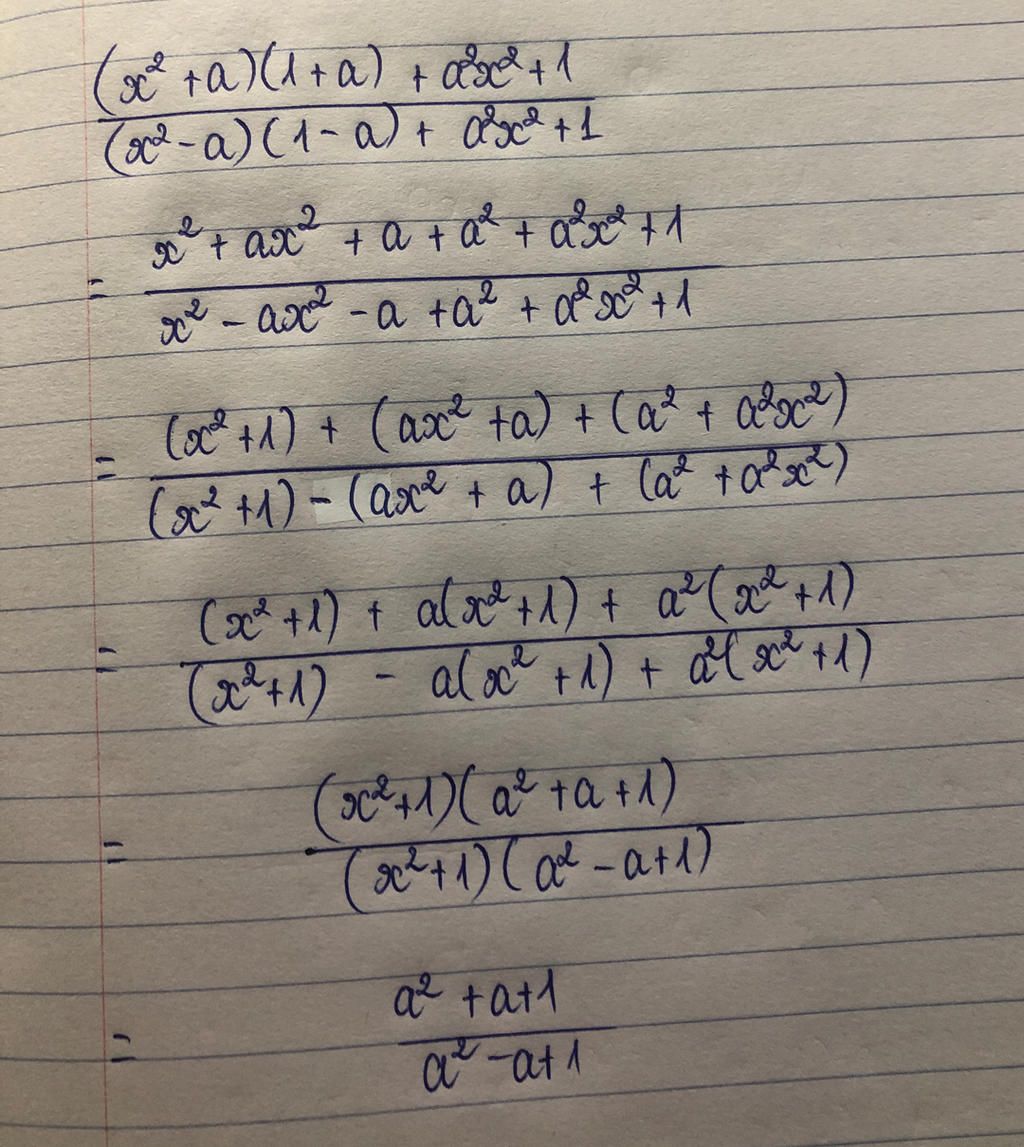 (x² + a)(1 + a) + a²x² + 1
(x² - a)(1 - a) + a²x² + 1
x² + ax² + a + a² + a²x² + 1
=
x² - ax² - a + a² + a²x² + 1
(x² + 1) + (ax² + a) + (a² + a²x²)
=
(x² + 1) - (ax² + a) + (a² + a²x²)
(x² + 1) + a(x² + 1) + a²(x² + 1)
=
(x² + 1) - a(x² + 1) + a²(x² + 1)
(x² + 1)(a² + a + 1)
=
(x² + 1)(a² - a + 1)
a² + a + 1
=
a² - a + 1